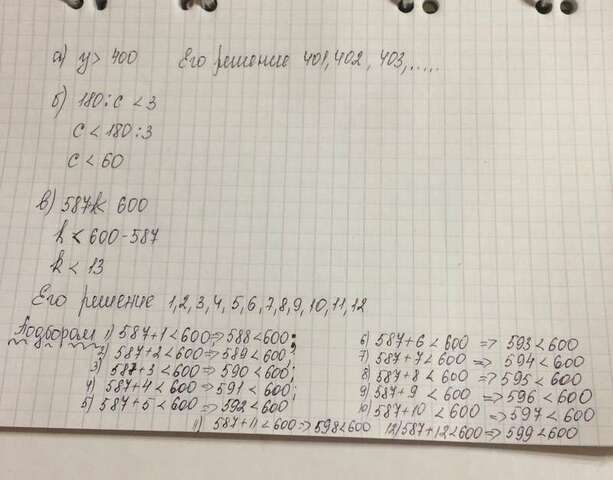 а) y > 400 Его решение 401, 402, 403, .....
б) 180 : c < 3
c < 180 : 3
c < 60
в) 587+k < 600
k < 600 - 587
k < 13
Его решение 1, 2, 3, 4, 5, 6, 7, 8, 9, 10, 11, 12
Подбором 1) 587+1<600 => 588<600;
2) 587+2<600 => 589<600;
3) 587+3<600 => 590<600;
4) 587+4<600 => 591<600;
5) 587+5<600 => 592<600
6) 587+6<600 => 593<600
7) 587+7<600 => 594<600
8) 587+8<600 => 595<600
9) 587+9<600 => 596<600
10) 587+10<600 => 597<600
11) 587+11<600 => 598<600 12) 587+12<600 => 599<600